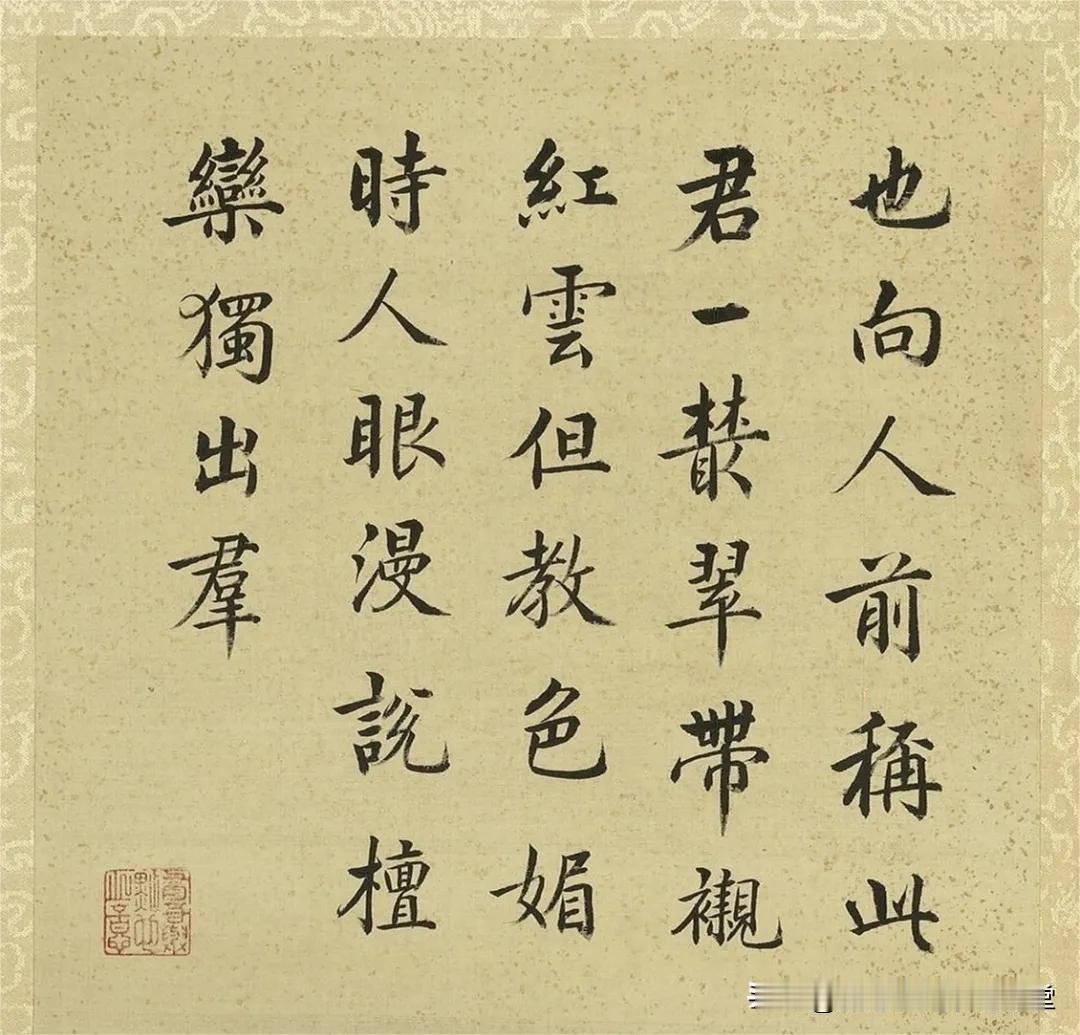 也向人前稱此
君一叢翠帶襯
紅雲但教色媚
時人眼漫說檀
欒獨出羣